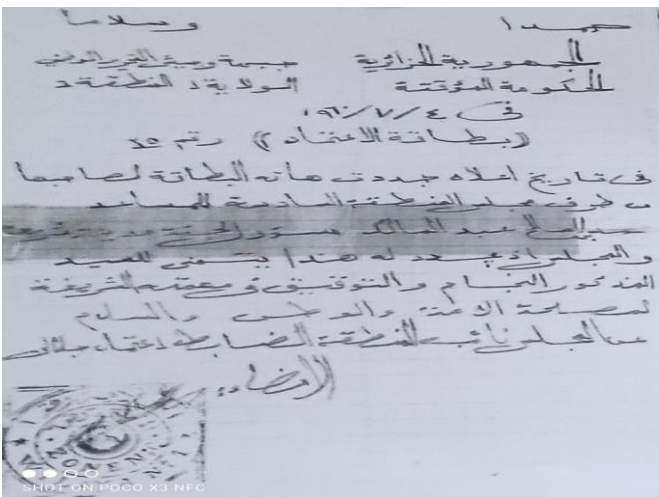 حمدا وسلاما
الجمهورية الجزائرية جبهة وجيش التحرير الوطني
الحكومة المؤقتة الولاية المنطقة
في ٤/٧/١٩٦٠
(بطاقة الاعتماد) رقم 35
في تاريخ اعلاه جددت هاته البطاقة لصاحبها
من طرف مجلس المنطقة السادسة للمساعد
عبد المالك مسؤول
والمجلس اذ يسند له هذا يتمنى للسيد
المذكور النجاح والتوفيق في مهمته الشريفة
لمصلحة الامة والوطن والسلام
عن المجلس نائب المنطقة الضابط اعتماد جلالي
الامضاء:
SHOT ON POCO X3 NFC